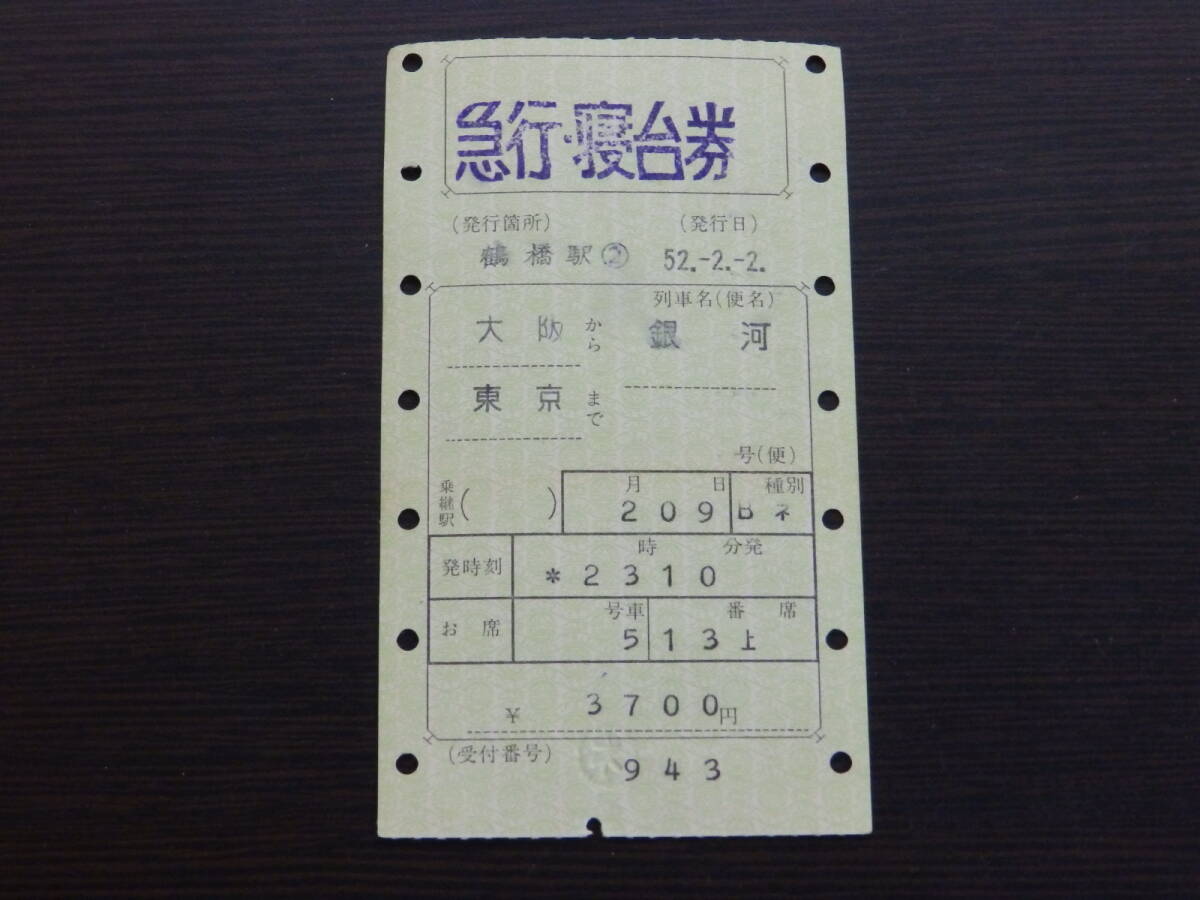 急行・寝台券
(発行箇所) (発行日)
鶴橋駅② 52.-2.-2.
列車名(便名)
大阪から 銀河
東京まで
号(便)
乗継駅( ) 月 日 種別
209 Bネ
発時刻 時 分発
*2310
お席 号車 番 席
5 13上
¥ 3700円
(受付番号)
943